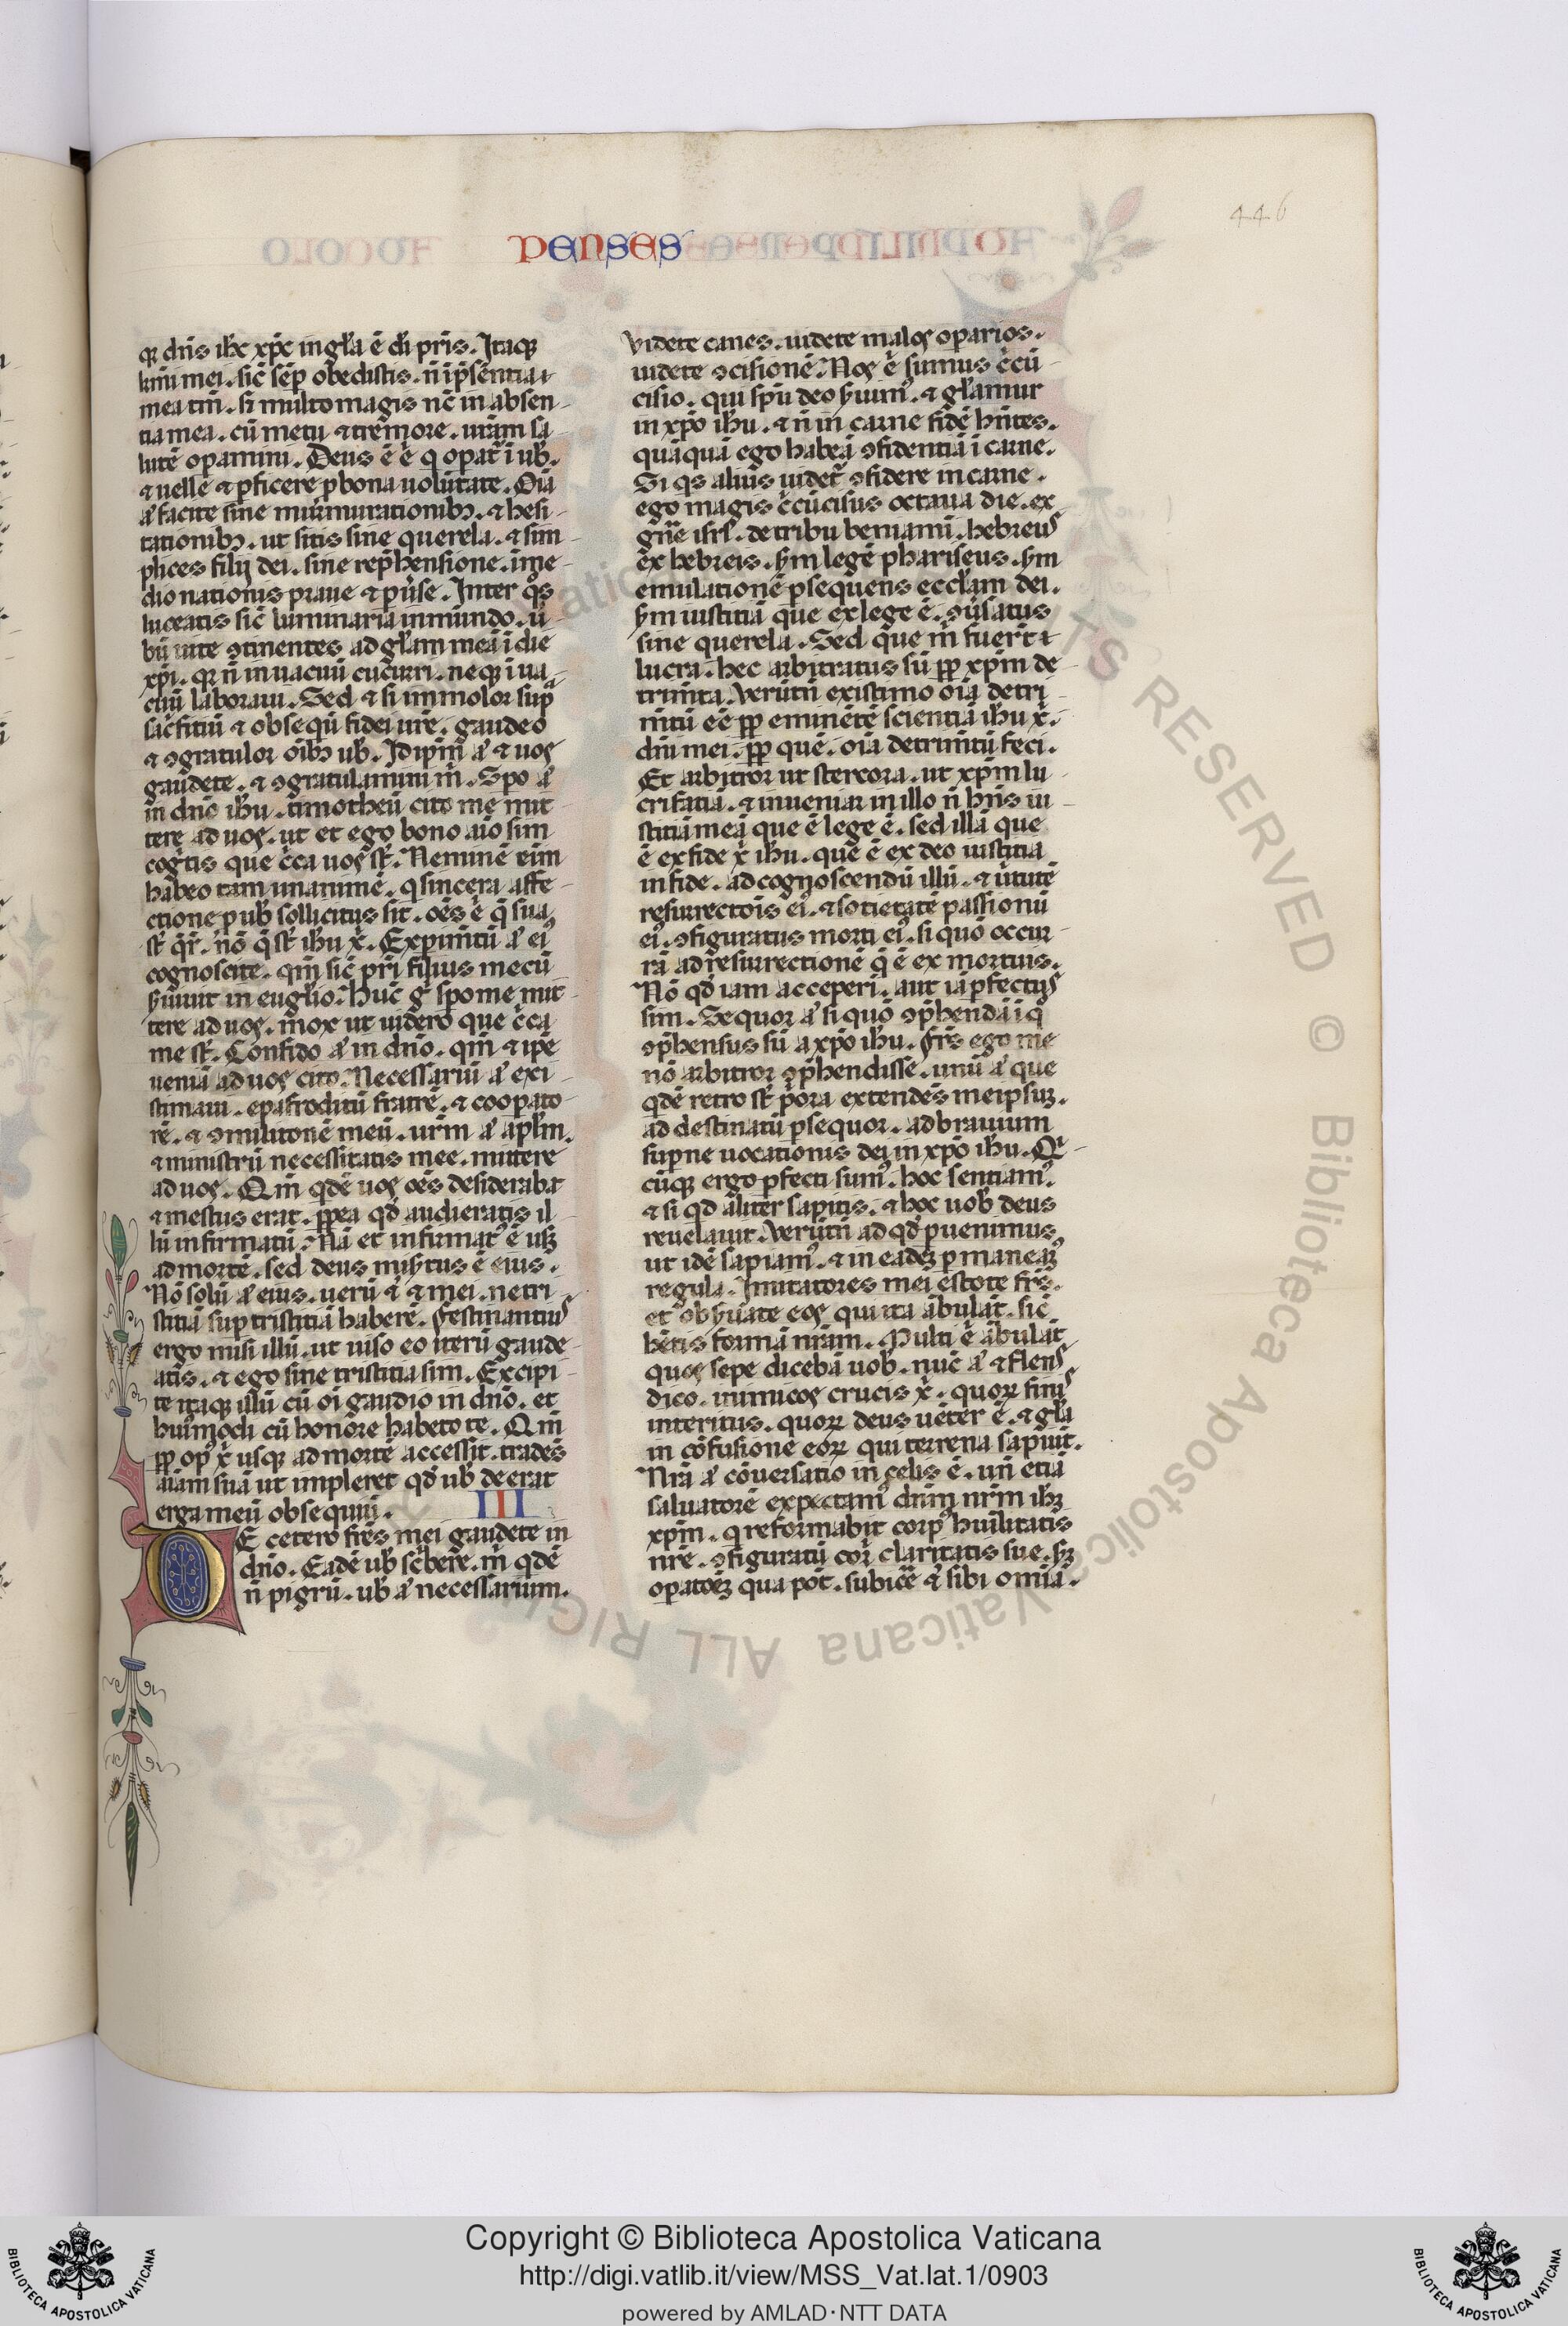 446
PENSES
qꝫ dn̄s ih̄c xp̄c in gl̄a ē dī pr̄is. Itaqꝫ
kr̄mi mei. sic̄ sēp obedistis. n̄ i p̄sentia
mea tm̄. sꝫ multo magis nc̄ in absen-
tia mea. cū metu ⁊ tremore. ur̄am sa
lutē opamini. Deus ē .n. q̇ opat̄ i ub̄.
⁊ uelle ⁊ ꝑficere ꝓ bona uolūtate. Oīa
aū facite sine murmurationibꝫ. ⁊ hesi-
tationibꝫ. ut sitis sine querela. ⁊ sim-
plices filij dei. sine rep̄hensione. i me-
dio nationis praue ⁊ ꝑu̇se. Inter q̊s
lucetis sic̄ luminaria in mundo. u̇-
bū uite ꝯtinentes ad gl̄am meā i die
xp̄i. qꝛ n̄ in uacuū cucurri. neqꝫ i ua-
cuū laboraui. Sed ⁊ si immolor supᵃ
sac̄fitiū ⁊ obsequiū fidei ur̄e. gaudeo
⁊ ꝯgratulor oīb̄ꝫ ub̄. Id ip̄m aū ⁊ uos
gaudete. ⁊ ꝯgratulamini m̄. Spo aū
in dn̄o ih̄u. timotheū cito me mit-
tere ad uos. ut et ego bono aīo sim
cogn̄tis que c̄ca uos st̄. Neminē eīm
habeo tam unanimē. q̇ sincera affe-
ctione ꝓ ub̄ sollicitus sit. oēs .n. q̄ sua
st̄ q̄r̄. nō q̄ st̄ ih̄u x̄. Exꝑim̄tū aū eiꝰ
cognoscite. qm̄ sic̄ pr̄i filius mecū
s̄uiuit in euḡlio. Hūc ḡ spo me mit-
tere ad uos. mox ut uidero que c̄ca
me st̄. Confido aū in dn̄o. qm̄ ⁊ ip̄e
ueniā ad uos cito. Necessariū aū exi-
stimaui. epafroditū fratrē. ⁊ coopato-
rē. ⁊ ꝯmilitonē meū. ur̄m aū ap̄lm.
⁊ ministrū necessitatis mee. mittere
ad uos. Qm̄ qdē uos oēs desiderabat
⁊ mestus erat. ꝓpea qd̄ audieratis il-
lū infirmatū. Nā et infirmatꝰ ē usqꝫ
ad mortē. sed deus mis̄tus ē eius.
Nō solū aū eius. uerū ē ⁊ mei. ne tri-
stitiā sup tristitiā haberē. Festinantiꝰ
ergo misi illū. ut uiso eo iterū gaude-
atis. ⁊ ego sine tristitia sim. Excipi-
te itaqꝫ illū cū oī gaudio in dn̄o. et
huiꝰmodi cū honore habetote. Qm̄
ꝓp opꝰ x̄ usqꝫ ad mortē accessit. tradēs
aīam suā ut impleret qd̄ ub̄ deerat
erga meū obsequiū. III
DE cetero fr̄es mei gaudete in
dn̄o. Eadē ub̄ sc̄bere. m̄ qdē
n̄ pigrū. ub̄ aū necessarium.
Videte canes. uidete malos oparios.
uidete ꝯcisionē. Nos .n. sumus c̄cū-
cisio. qui spū deo s̄uimꝰ. ⁊ gl̄amur
in xp̄o ih̄u. ⁊ n̄ in carne fidē hn̄tes.
quāquā ego habeā ꝯfidentiā i carne.
Si q̇s alius uidet̄ ꝯfidere in carne.
ego magis c̄cūcisus octaua die. ex
gn̄e isr̄l. de tribu beniamī. hebreus
ex hebreis. s̄m legē phariseus. s̄m
emulationē ꝑsequens eccl̄am dei.
s̄m iustitiā que ex lege ē. ꝯu̇satus
sine querela. Sed que m̄ fuerūt
lucra. hec arbitratus sū ꝓp xp̄m de-
trim̄ta. Verūtn̄ existimo oīa detri-
m̄tū eē ꝓp eminētē scientiā ih̄u x̄.
dn̄i mei. ꝓp quē. oīa detrim̄tū feci.
Et arbitror ut stercora. ut xp̄m lu-
crifatiā. ⁊ inueniar in illo n̄ hn̄s iu-
stitiā meā que ē lege ē. sed illā que
ē ex fide x̄ ih̄u. que ē ex deo iustitia
in fide. ad cognoscendū illū. ⁊ u̇tutē
resurrectōis eiꝰ. ⁊ sotietatē passionū
eiꝰ. ꝯfiguratus morti eiꝰ. si quo occur-
rā ad resurrectionē q̄ ē ex mortuis.
Nō qd̄ iam acceperī. aut iā ꝑfectus
sim. Sequor aū si quo ꝯp̄hendā i q̊
ꝯp̄hensus sū a xp̄o ih̄u. Fr̄s ego me
nō arbitror ꝯp̄hendisse. unū aū que
qdē retro st̄ ꝓora extendēs meipsuꝫ.
ad destinatū ꝑsequor. ad brauium
supne uocationis dei in xp̄o ih̄u. Qi-
cūqꝫ ergo ꝑfecti sumꝰ. hoc sentiamꝰ.
⁊ si qd̄ aliter sapitis. ⁊ hoc uob̄ deus
reuelauit. Verūtn̄ ad qd̄ ꝑuenimus
ut idē sapiamꝰ. ⁊ in eadeꝫ ꝑmaneamꝰ
regula. Imitatores mei estote fr̄s.
et obs̄uate eos qui ita ābulāt. sic̄
hētis formā nr̄am. Multi .n. ābulāt
quos sepe dicebā uob̄. nūc aū ⁊ flens
dico. inimicos crucis x̄. quoꝝ finis
interitus. quoꝝ deus uēter ē. ⁊ gl̄a
in cōfusione eoꝝ qui terrena sapiūt.
Nr̄a aū cōuersatio in celis ē. un̄ etiā
saluatorē expectamꝰ dn̄m nr̄m ih̄ꝫ
xp̄m. q̇ reformabit corpꝰ huīlitatis
nr̄e. ꝯfiguratū cor̄i claritatis sue. s̄ꝫ
opatōeꝫ qua pōt. subicē ē sibi omīa.
Copyright © Biblioteca Apostolica Vaticana
http://digi.vatlib.it/view/MSS_Vat.lat.1/0903
powered by AMLAD·NTT DATA
BIBLIOTECA APOSTOLICA VATICANA
BIBLIOTECA APOSTOLICA VATICANA
ALL RIGHTS RESERVED © Biblioteca Apostolica Vaticana